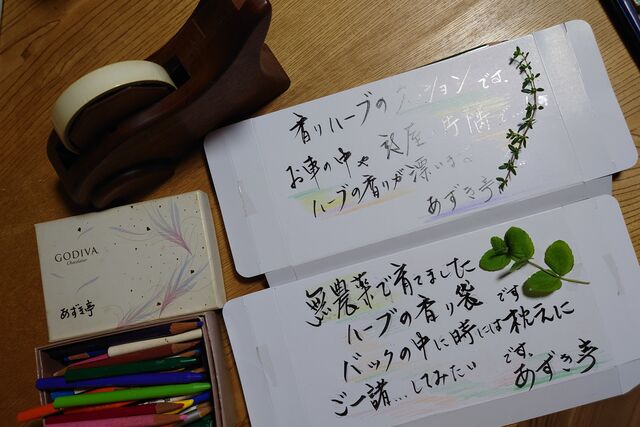 香りハーブのクッションです.
お車の中や部屋の片隅で...
ハーブの香りが漂います
あずき亭
GODIVA
Chocolatier
あずき亭
無農薬で育てました
ハーブの香り袋です
バックの中に時には枕元に
ご一諸...してみたいです.
あずき亭